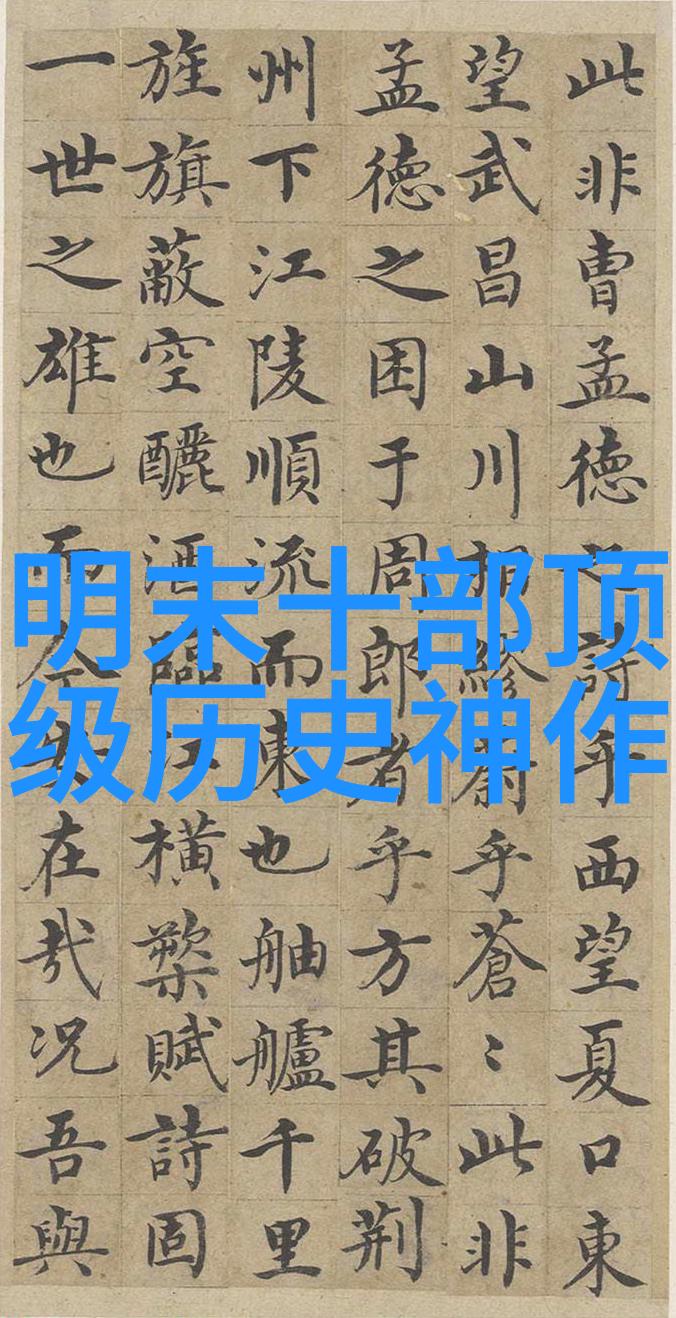 此非曹孟德之詩乎西望夏口東
望武昌山川相繆乎蒼〻此非
孟德之困于周郎者乎方其破荆
州下江陵順流而東也舳艫千里
旌旗蔽空釃酒臨江横槊賦詩固
一世之雄也而今安在哉况吾與
明末十部顶
级历史神作